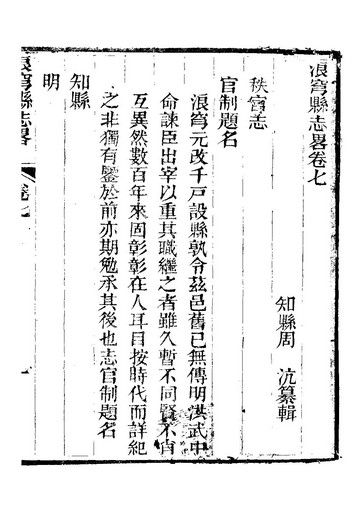 浪穹縣志畧卷七
知縣周沆纂輯
秩官志
官制題名
浪穹元改千戸設縣孰令茲邑舊已無傳明洪武中
命諫臣出宰以重其職繼之者雖久暫不同賢不肖
互異然數百年來固彰彰在人耳目按時代而詳紀
之非獨有鑒於前亦期勉承其後也志官制題名
知縣
明
浪穹縣志畧
卷七